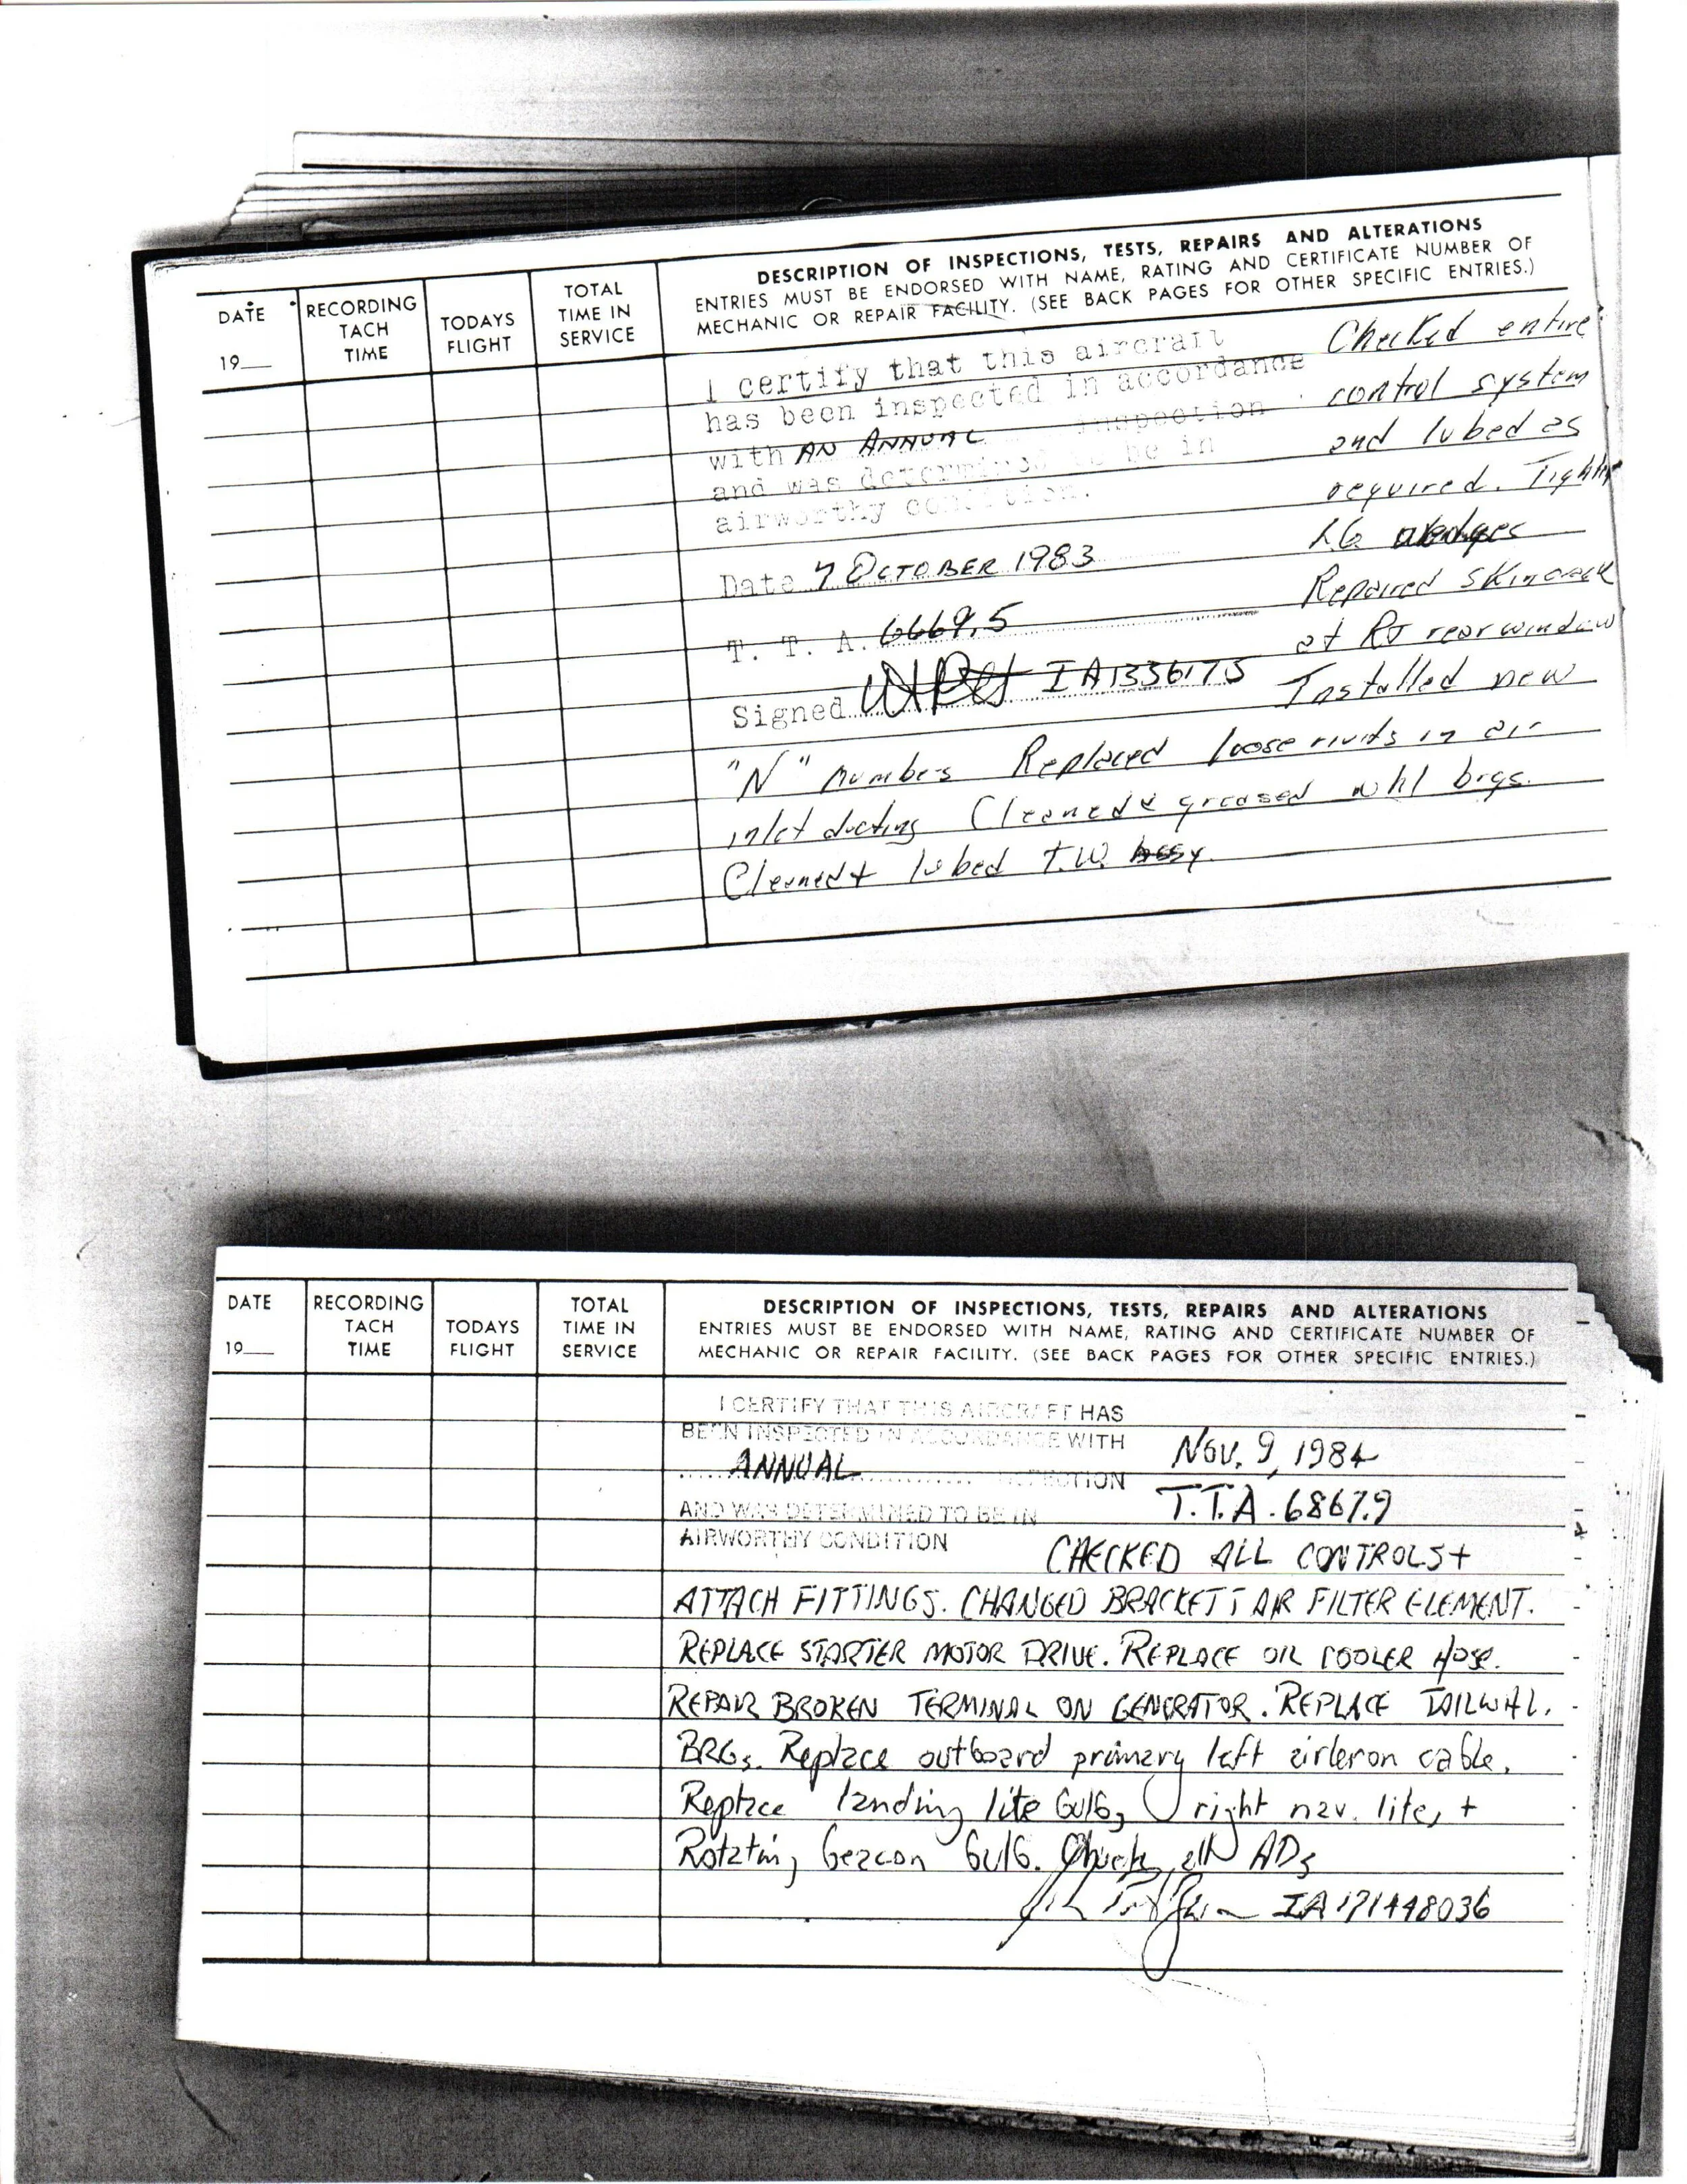 DATE
19__
RECORDING
TACH
TIME
TODAYS
FLIGHT
TOTAL
TIME IN
SERVICE
DESCRIPTION OF INSPECTIONS, TESTS, REPAIRS AND ALTERATIONS
ENTRIES MUST BE ENDORSED WITH NAME, RATING AND CERTIFICATE NUMBER OF
MECHANIC OR REPAIR FACILITY. (SEE BACK PAGES FOR OTHER SPECIFIC ENTRIES.)
I certify that this aircraft
has been inspected in accordance
with AN ANNUAL inspection
and was determined to be in
airworthy condition.
Date 7 OCTOBER 1983
T. T. A. 6669.5
Signed IA1336175
Checked entire
control system
and lubed as
required. Tighten
LG
Repaired skin crack
at RT rear window
Installed new
"N" numbers Replaced loose rivits in air
inlet ducting Cleaned & greased whl brgs.
Cleaned + lubed T.W. assy.
DATE
19__
RECORDING
TACH
TIME
TODAYS
FLIGHT
TOTAL
TIME IN
SERVICE
DESCRIPTION OF INSPECTIONS, TESTS, REPAIRS AND ALTERATIONS
ENTRIES MUST BE ENDORSED WITH NAME, RATING AND CERTIFICATE NUMBER OF
MECHANIC OR REPAIR FACILITY. (SEE BACK PAGES FOR OTHER SPECIFIC ENTRIES.)
I CERTIFY THAT THIS AIRCRAFT HAS
BEEN INSPECTED IN ACCORDANCE WITH
ANNUAL INSPECTION
AND WAS DETERMINED TO BE IN
AIRWORTHY CONDITION
NOV. 9, 1984
T.T.A. 6867.9
CHECKED ALL CONTROLS +
ATTACH FITTINGS. CHANGED BRACKETT AIR FILTER ELEMENT.
REPLACE STARTER MOTOR DRIVE. REPLACE OIL COOLER HOSE.
REPAIR BROKEN TERMINAL ON GENERATOR. REPLACE TAILWHL.
BRGs. Replace outboard primary left aileron cable.
Replace landing lite bulb, right nav. lite, +
Rotating beacon bulb. Check all ADs
IA 171448036